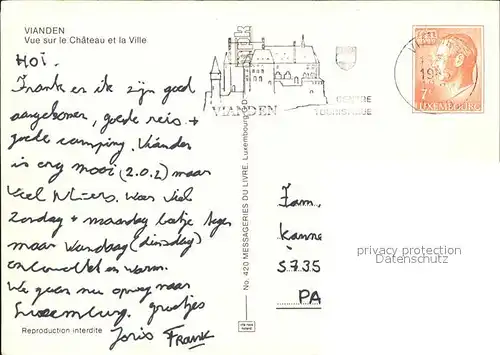 VIANDEN
Vue sur le Château et la Ville
HOI.
Frank en ik zijn goed
aangekomen, goede reis +
goede camping. Vianden
is erg mooi (z.o.z) maar
veel
Zondag + maandag beetje regen
maar Vandaag (dinsdag)
en warm.
We gaan nu op weg naar
Luxemburg. groetjes
Joris FRANK
Reproduction interdite
No. 420 MESSAGERIES DU LIVRE, Luxembourg
VIANDEN
CENTRE
TOURISTIQUE
7F
LUXEMBOURG
Fam.
Kanne
5735
PA
privacy protection
Datenschutz